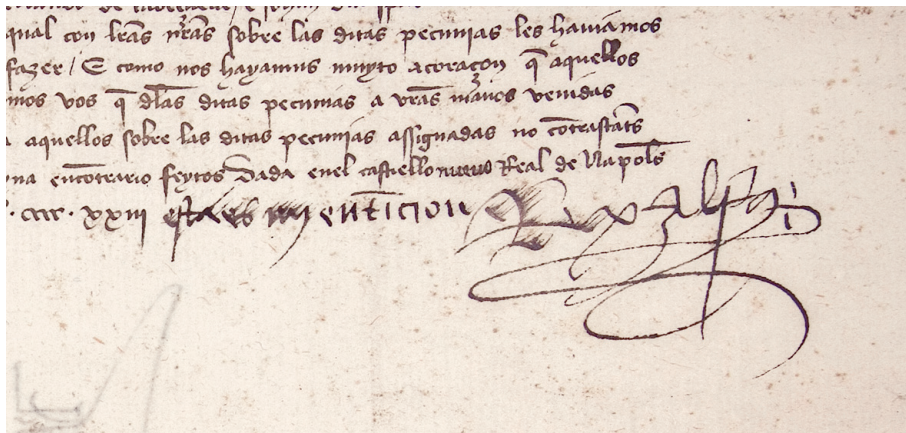 qual con lras nras sobre las ditas pecunias les haviamos
fazer / E como nos hayamus muyto acoraçon q̄ aquellos
mos vos q̄ dlas ditas pecunias a vras manos venidas
aquellos sobre las ditas pecunias assignadas no cōtrastāts
una encōtrario feytos Dada enel castiello nuevo Real de Napols
cccc xxiii esta es my entīcion Rex Alfōs